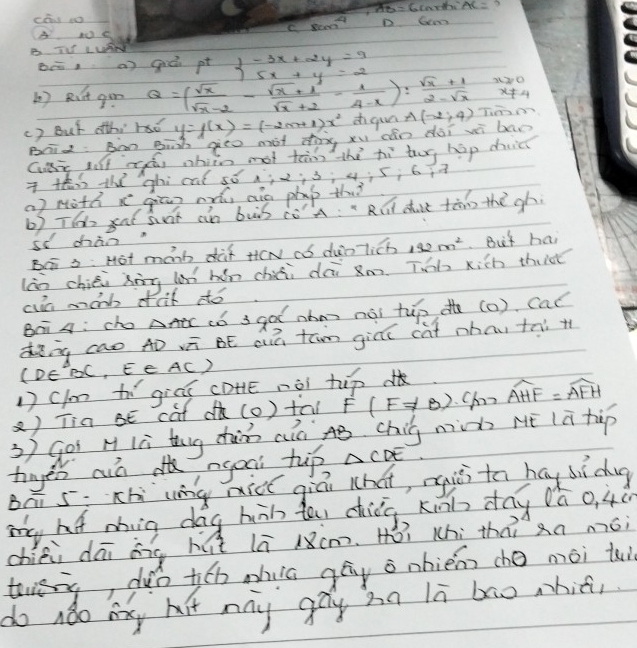 câu 10 AB = 6cm thì AC = ?
A. 10 C. 8cm D. 6cm
B. TỰ LUẬN
Bài 1. a) giải pt { -3x + 2y = 9
5x + y = 2
b) Rút gọn Q = (√x/(√x-2) - (√x+1)/(√x+2) - 1/(4-x)) : (√x+1)/(2-√x) x≥0 x≠4
c) Biết đthị hsố y = f(x) = (-2m+1)x² đi qua A(-2;4) Tìm m.
Bài 2: Bạn Bình gieo một đồng xu cân đối và bạn
Cường rút ngẫu nhiên một tấm thẻ từ trong hộp chứa
7 tấm thẻ ghi các số 1; 2; 3; 4; 5; 6; 7
a) Mô tả k gian mẫu của phép thử?
b) Tính xác suất của biến cố A: "Rút được tấm thẻ ghi
số chẵn"
Bài 3: Một mảnh đất HCN có diện tích 192 m². Biết hai
lần chiều rộng lớn hơn chiều dài 8m. Tính kích thước
của mảnh đất đó
Bài 4: cho ΔABC có 3 góc nhọn nội tiếp đtr (O). Các
đường cao AD và BE của tam giác cắt nhau tại H
(D∈BC, E ∈ AC)
1) C/m tứ giác CDHE nội tiếp đtr
2) Tia BE cắt đtr (O) tại F (F ≠ B). C/m AHF = AFH
3) Gọi M là trung điểm của AB. Chứng minh ME là tiếp
tuyến của đtr ngoại tiếp ΔCDE
Bài 5: Khi uống nước giải khát, người ta hay sử dụng
ống hút nhựa dạng hình trụ đường kính đáy là 0,4cm
chiều dài ống hút là 18cm. Hỏi khi thải ra môi
trường, diện tích nhựa gây ô nhiễm cho môi
do 100 ống hút này gây ra là bao nhiêu.